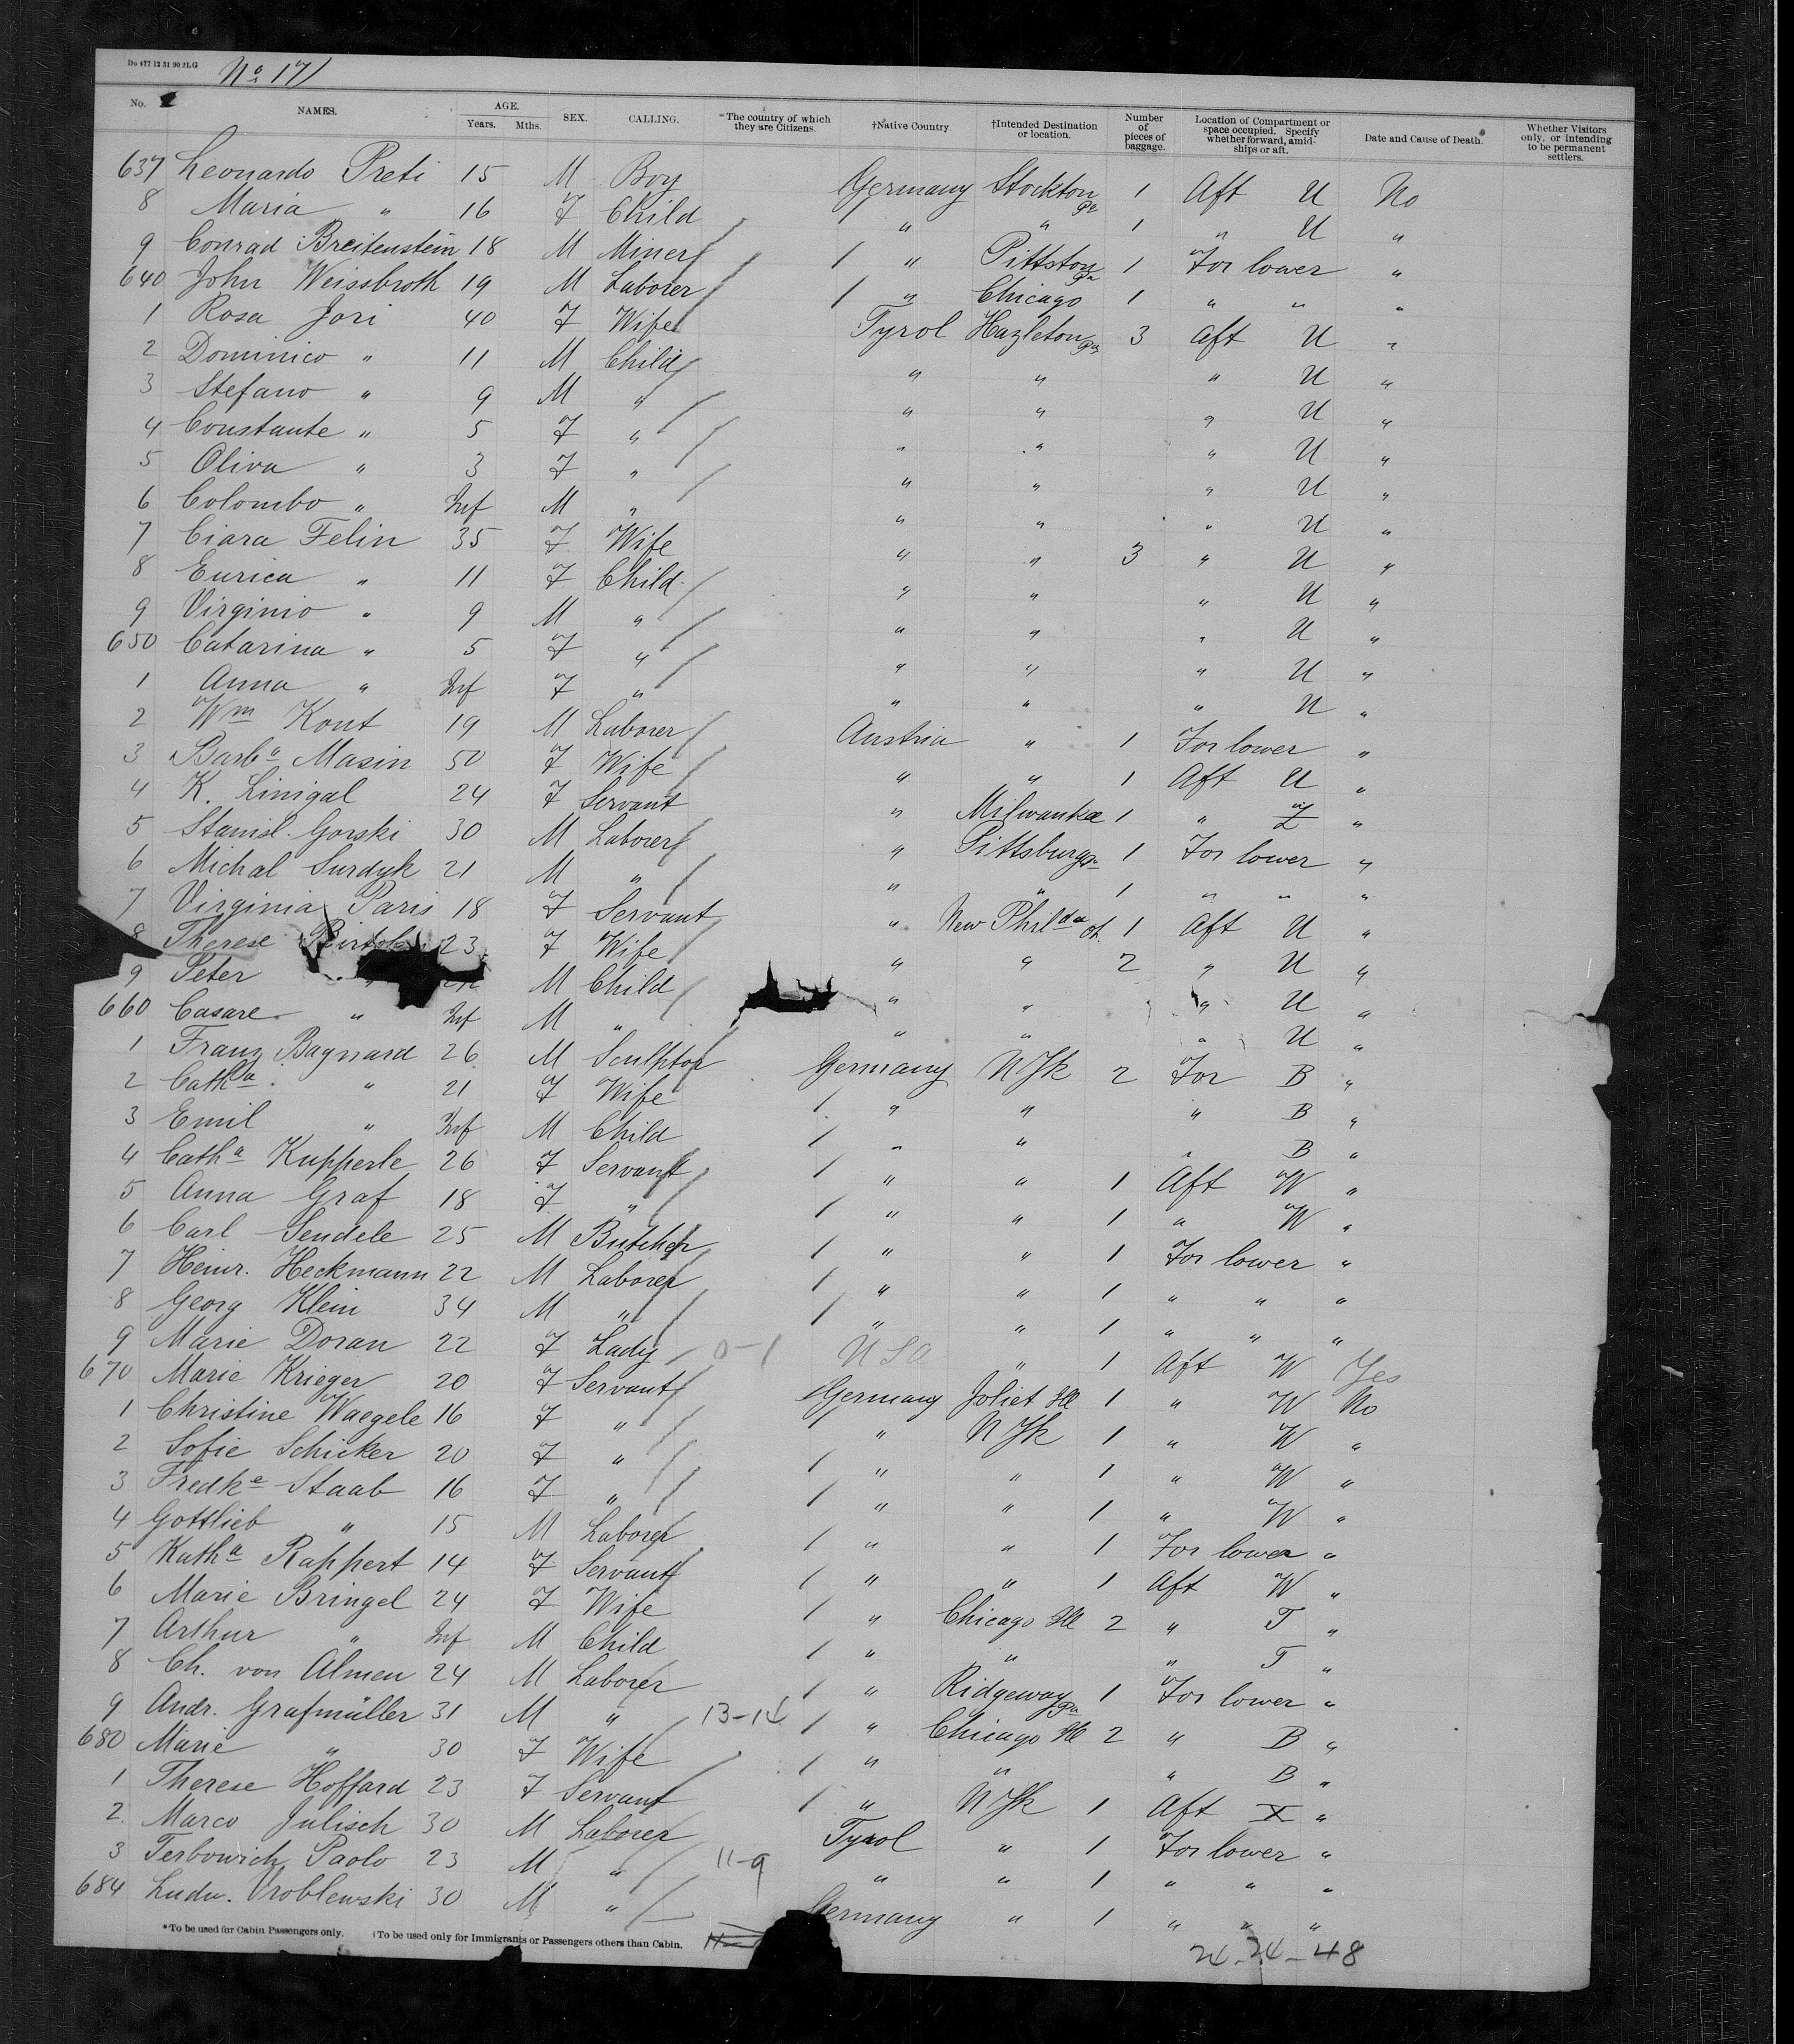 Do 477 12 31 90 2LG No 171
No. NAMES. AGE. Years. Mths. SEX. CALLING. *The country of which they are Citizens. †Native Country. †Intended Destination or location. Number of pieces of baggage. Location of Compartment or space occupied. Specify whether forward, amidships or aft. Date and Cause of Death. Whether Visitors only, or intending to be permanent settlers.
637 Leonardo Preti 15 M Boy Germany Stockton Pa 1 Aft U No
8 Maria " 16 F Child " " 1 " U "
9 Conrad Breitenstein 18 M Miner / " Pittston Pa 1 For lower "
640 John Weissbroth 19 M Laborer / " Chicago 1 " " "
1 Rosa Jori 40 F Wife Tyrol Hazleton Pa 3 Aft U "
2 Dominico " 11 M Child " " " U "
3 Stefano " 9 M " " " " U "
4 Constante " 5 F " " " " U "
5 Oliva " 3 F " " " " U "
6 Colombo " Inf M " " " " U "
7 Ciara Felin 35 F Wife " " 3 " U "
8 Eurica " 11 F Child " " " U "
9 Virginio " 9 M " " " " U "
650 Catarina " 5 F " " " " U "
1 Anna " Inf F " " " " U "
2 Wm Kout 19 M Laborer Austria " 1 For lower "
3 Barba Masin 50 F Wife " " 1 Aft U "
4 K. Linigal 24 F Servant " Milwaukee 1 " Z "
5 Stanisl. Gorski 30 M Laborer " Pittsburg 1 For lower "
6 Michal Surdyk 21 M " " " 1 " " "
7 Virginia Paris 18 F Servant " New Philda O. 1 Aft U "
8 Therese 23 F Wife " " 2 " U "
9 Peter " M Child " " " U "
660 Casare " Inf M " " " " U "
1 Franz Bagnard 26 M Sculptor Germany N Yk 2 For B "
2 Catha " 21 F Wife / " " " B "
3 Emil " Inf M Child / " " " B "
4 Catha Kupperle 26 F Servant / " " 1 Aft W "
5 Anna Graf 18 F " / " " 1 " W "
6 Carl Sendele 25 M Butcher / " " 1 For lower "
7 Heinr. Heckmann 22 M Laborer / " " 1 " " "
8 Georg Klein 34 M " / " " 1 " " "
9 Marie Doran 22 F Lady 0-1 USA " 1 Aft W Yes
670 Marie Krieger 20 F Servant Germany Joliet Ill 1 " W No
1 Christine Waegele 16 F " / " N Yk 1 " W "
2 Sofie Schicker 20 F " / " " 1 " W "
3 Fredke Staab 16 F " / " " 1 " W "
4 Gottlieb " 15 M Laborer / " " 1 For lower "
5 Katha Rappert 14 F Servant / " " 1 Aft W "
6 Marie Bringel 24 F Wife / " Chicago Ill 2 " T "
7 Arthur " Inf M Child / " " " T "
8 Ch. von Almen 24 M Laborer / " Ridgeway Pa 1 For lower "
9 Andr. Grafmüller 31 M " 13-14 / " Chicago Ill 2 " B "
680 Marie " 30 F Wife / " " " B "
1 Therese Hoffard 23 F Servant / " N Yk 1 Aft X "
2 Marco Julisch 30 M Laborer Tyrol " 1 For lower "
3 Terbowich Paolo 23 M " 11-9 " " 1 " " "
684 Ludw. Vroblewski 30 M " Germany " 1 " " "
*To be used for Cabin Passengers only. †To be used only for Immigrants or Passengers others than Cabin.
24-24-48